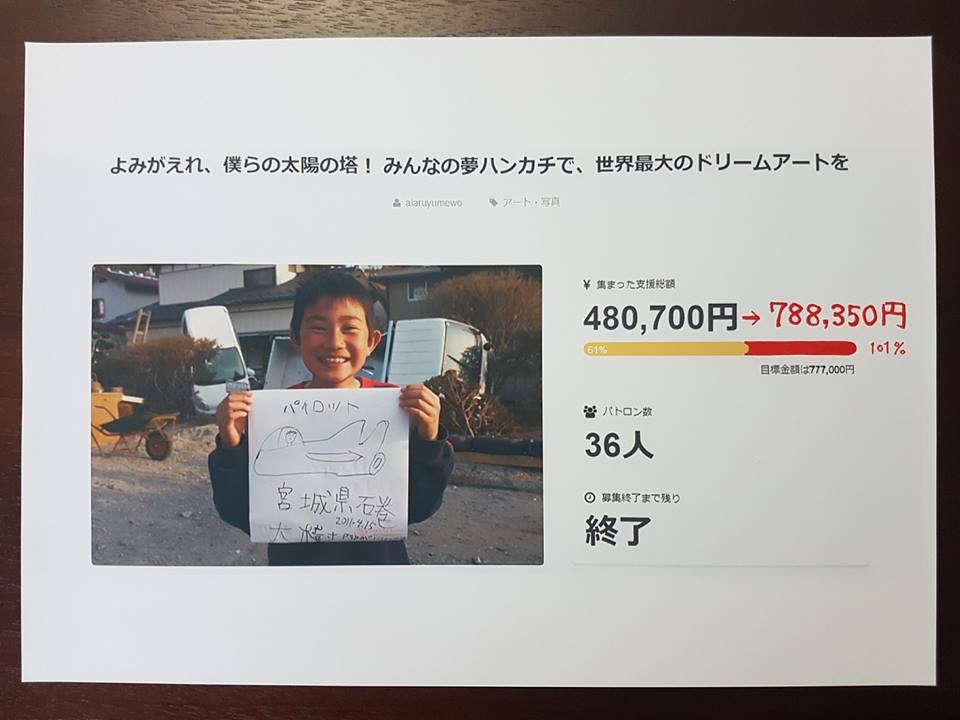 よみがえれ、僕らの太陽の塔！ みんなの夢ハンカチで、世界最大のドリームアートを
aiaruyumewo アート・写真
¥ 集まった支援総額
480,700円→788,350円
61% 101%
目標金額は777,000円
パトロン数
36人
募集終了まで残り
終了
パイロット
宮城県石巻
2011.4.15
大